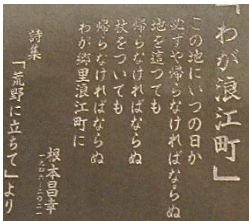 「わが浪江町」
この地にいつの日か
必ずや帰らなければならぬ
地を這つても
帰らなければならぬ
杖をついても
帰らなければならぬ
わが郷里浪江町に
詩集
「荒野に立ちて」より
根本昌幸
一九四六〜二〇二一